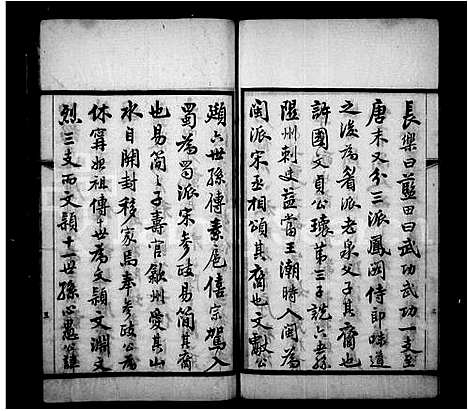 長樂曰藍田曰武功武功一支至
唐末又分三派鳳閣侍郎味道
之後為眉派老泉父子其裔也
許國文貞公瓌第三子詵六世孫
隰州刺史益當王潮時入閩為
閩派宋丞相頌其裔也文獻公
頲六世孫傳素扈僖宗駕入
蜀為蜀派宋參政易簡其裔
也易簡之子壽官歙州愛其山
水自開封移家焉奉參政公為
休甯始祖傳十世為文頴文淵文
烈三支而文頴十一世孫心愚諱